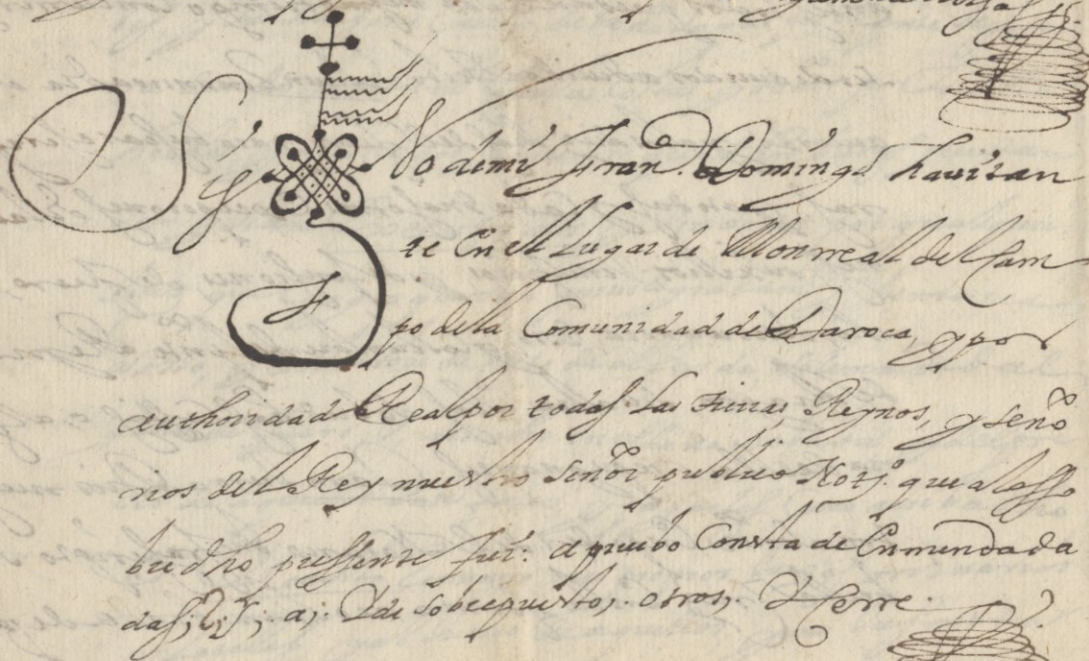 Sig No de mi Fran.co Domingo havitan
te En el Lugar de Monrreal del Cam
po de la Comunidad de Daroca, y por
authoridad Real por todas las tierras Reynos, y seño
rios del Rey nuestro señor publico Not.º que a lo sso
bredho pressente fui: apruebo Consta de Enmendada
das; a; de sobrepuesto; otros; Y Cerre.